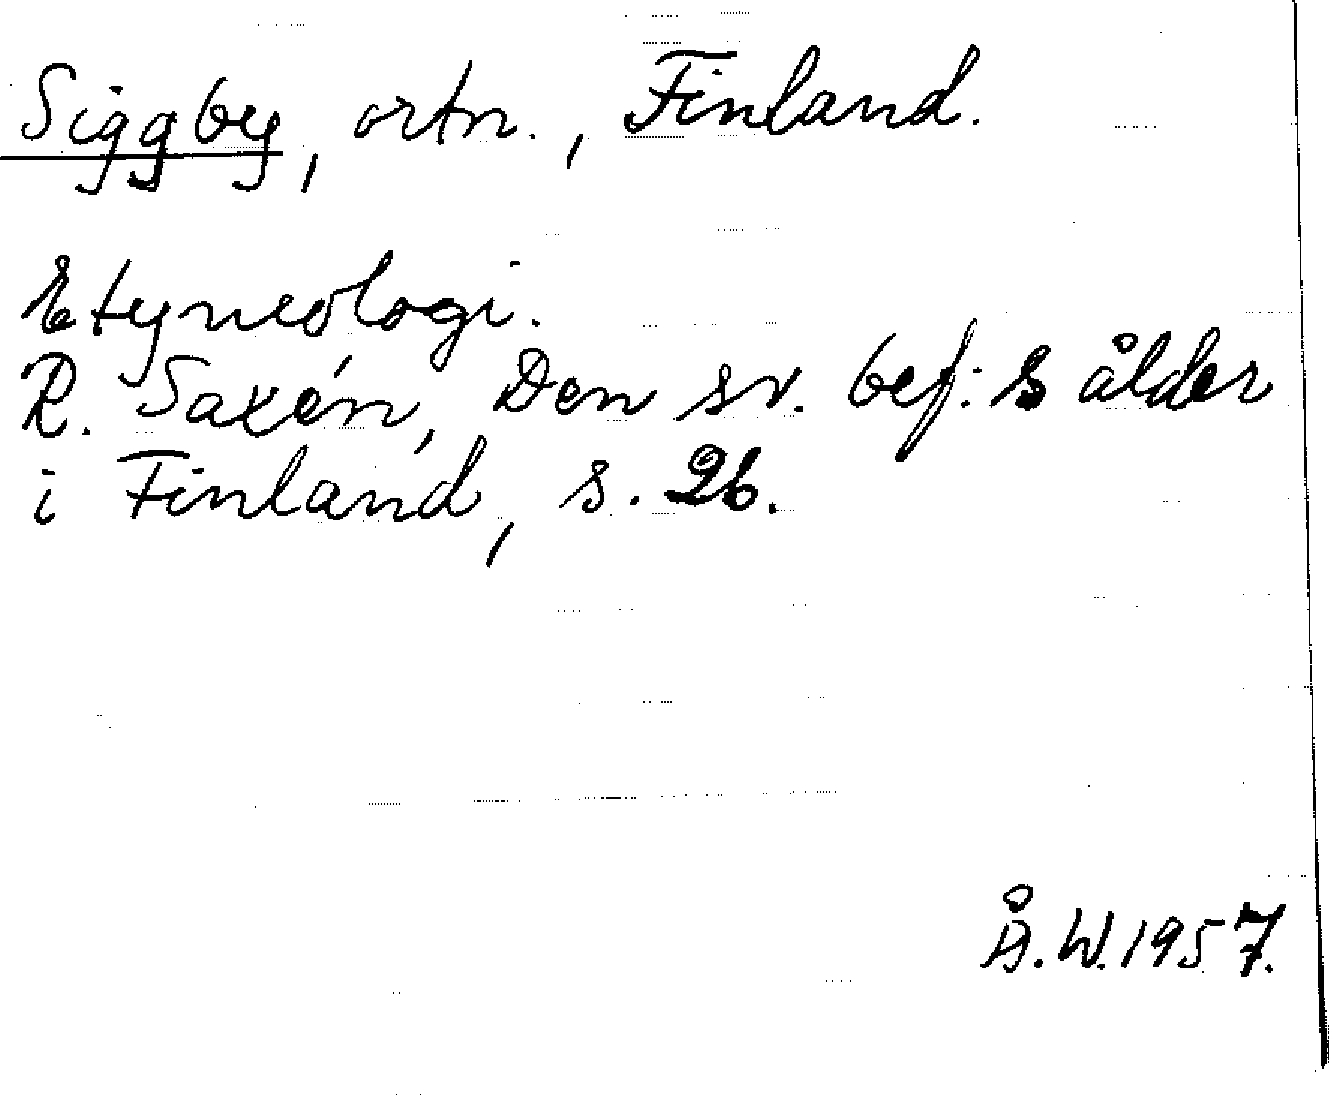 Siggby, ortn., Finland.
Etymologi.
R. Saxén, Den sv. bef:s ålder
i Finland, s. 26.
Å.W.1957.